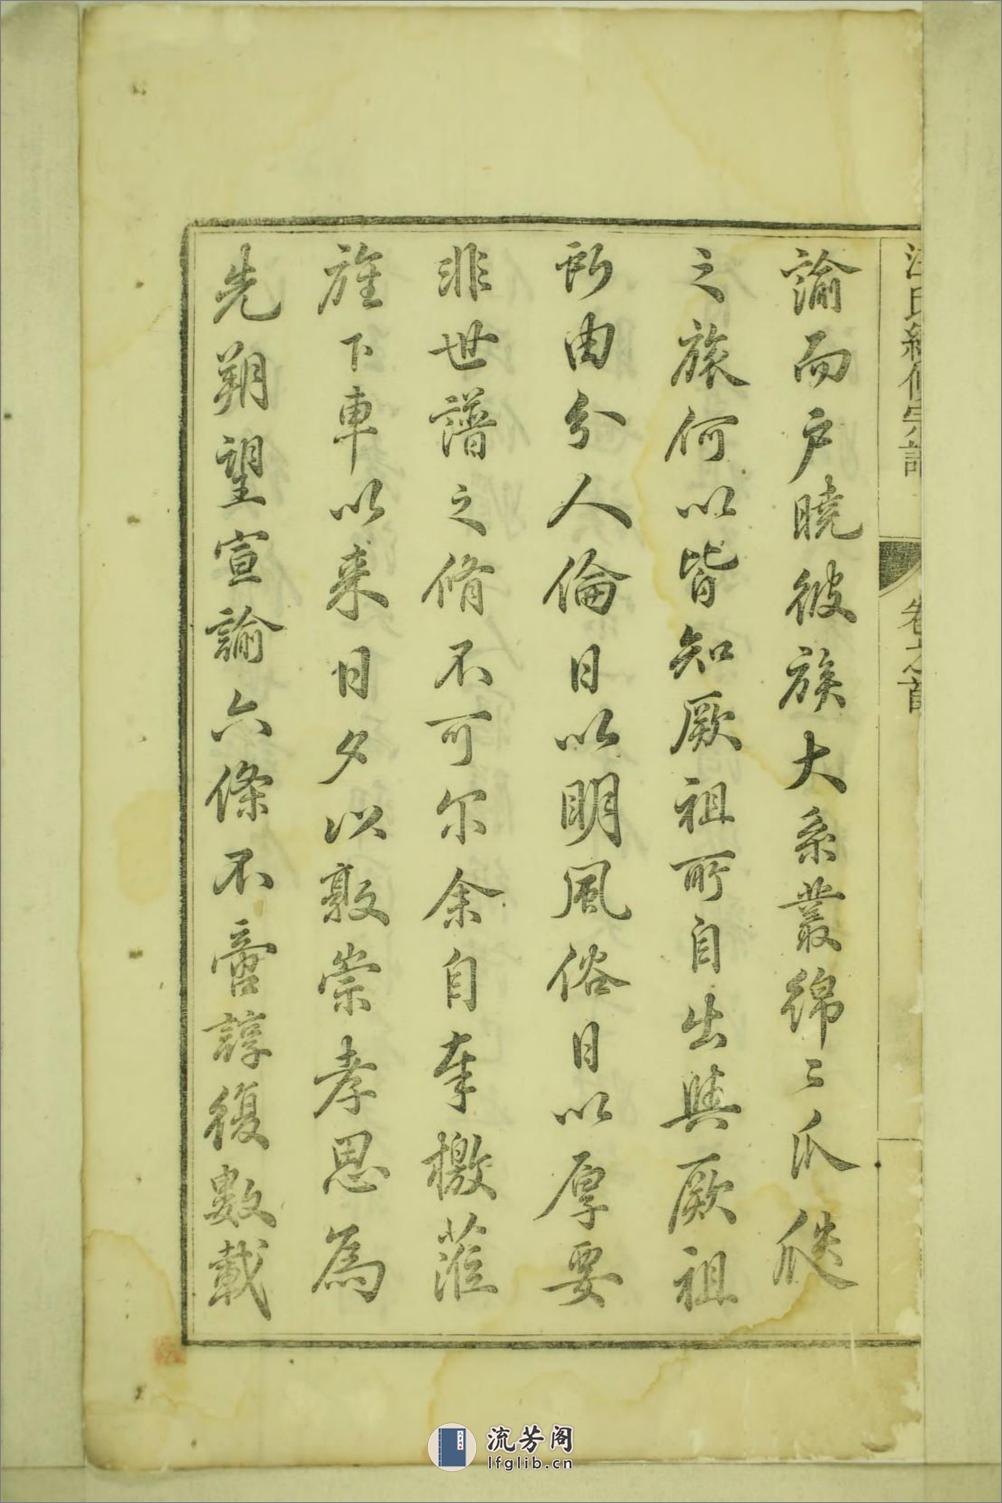 氏續修宗譜 卷之首
諭而戶曉彼族大系叢綿〻瓜瓞
之族何以皆知厥祖所自出與厥祖
所由分人倫日以明風俗日以厚要
非世譜之脩不可尔余自奉檄蒞
旌下車以来日夕以敦崇孝思為
先朔望宣諭六條不啻諄復數載
流芳阁
lfglib.cn